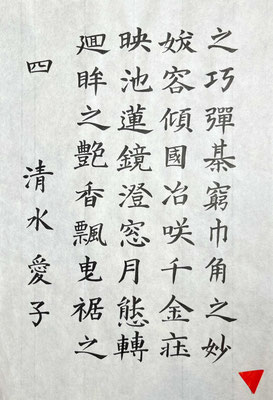 之巧彈棊窮巾角之妙
妭容傾國冶咲千金荘
映池蓮鏡澄窓月態轉
廻眸之艶香飄曳裾之
四 清水愛子